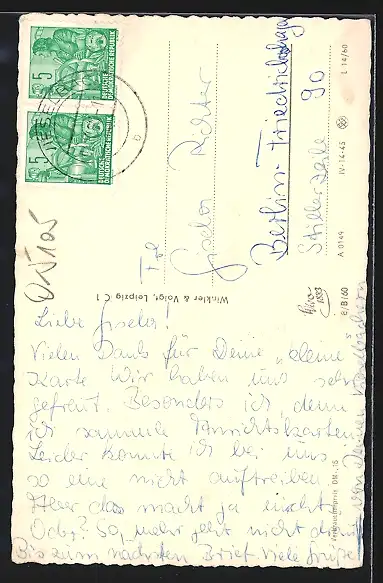 Liebe Gisela!
Vielen Dank für Deine „kleine"
Karte. Wir haben uns sehr
gefreut. Besonders ich, denn
ich sammele Ansichtskarten.
Leider konnte ich bei uns
so eine nicht auftreiben.
Aber das macht ja nichts.
Oder? So, mehr geht nicht drauf
Bis zum nächsten Brief viele Grüße
von Deinem
Frl.
Gisela Richter
Berlin-Friedrichshagen
Stillerzeile 90
Winkler & Voigt, Leipzig C 1
8/B/60
A 0149 IV-14-45 L 14/60
5
DEUTSCHE
DEMOKRATISCHE REPUBLIK
5
DEUTSCHE
DEMOKRATISCHE REPUBLIK